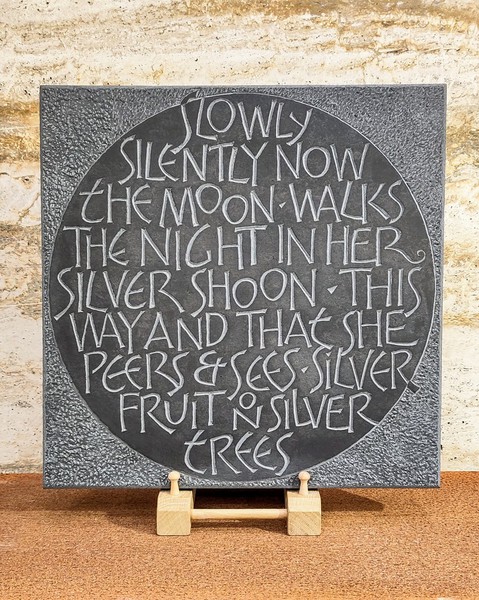 SLOWLY
SILENTLY NOW
THE MOON · WALKS
THE NIGHT IN HER
SILVER SHOON · THIS
WAY AND THAT SHE
PEERS & SEES · SILVER
FRUIT ON SILVER
TREES